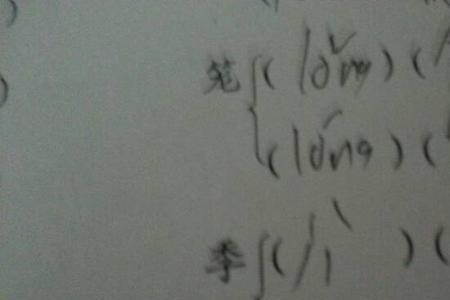 笼 { (lǒng) (
(lóng) (
季 { (jì ) (